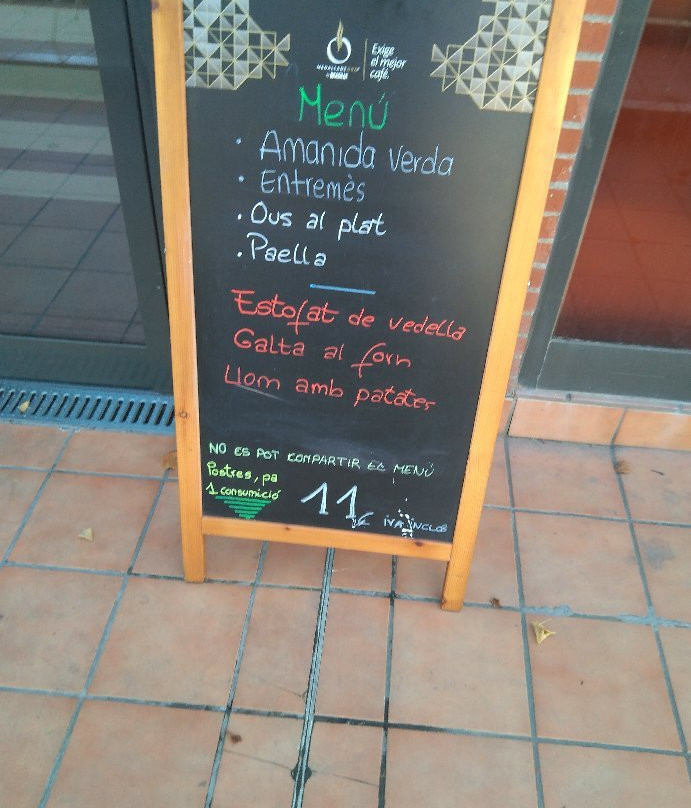 Exige
el mejor
café.
Menú
· Amanida verda
· Entremès
· Ous al plat
· Paella
Estofat de vedella
Galta al forn
Llom amb patates
NO ES POT COMPARTIR EL MENÚ
Postres, pa
1 consumició
11€ IVA INCLOS